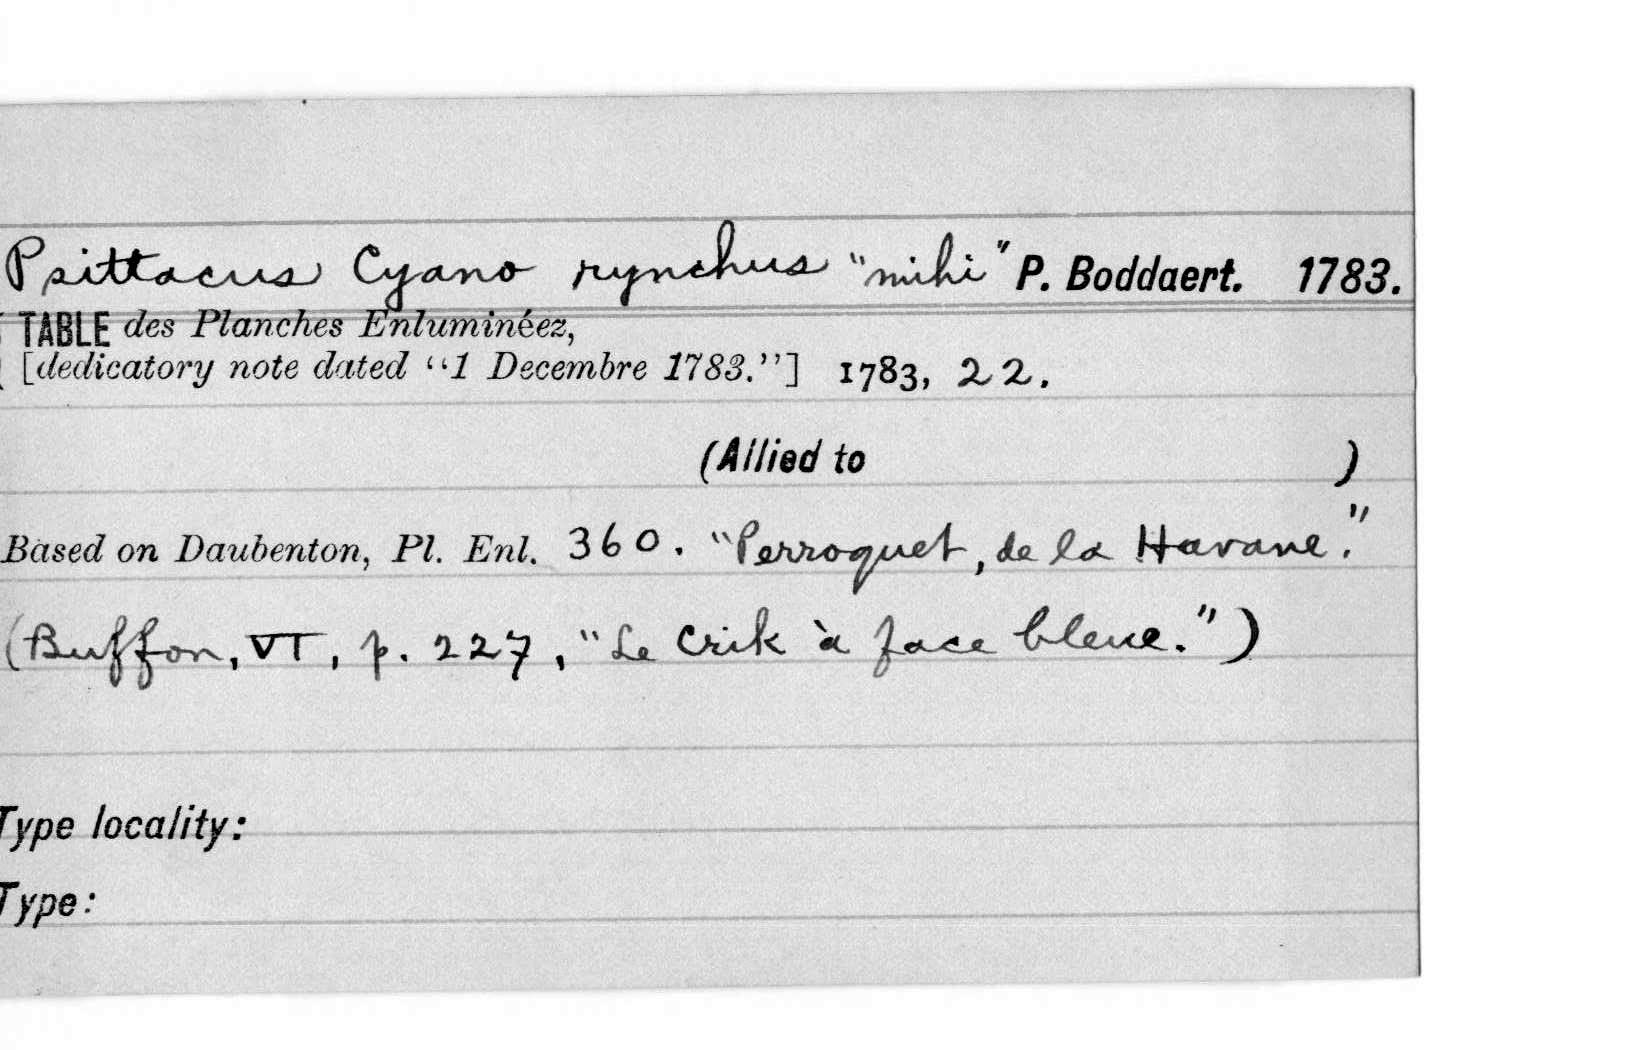 Psittacus Cyano rynchus "mihi" P. Boddaert. 1783.
TABLE des Planches Enluminéez,
[dedicatory note dated "1 Decembre 1783."] 1783, 22.
(Allied to )
Based on Daubenton, Pl. Enl. 360. "Perroquet, de la Havane."
(Buffon, VI, p. 227, "Le Crik à face bleue.")
Type locality:
Type: